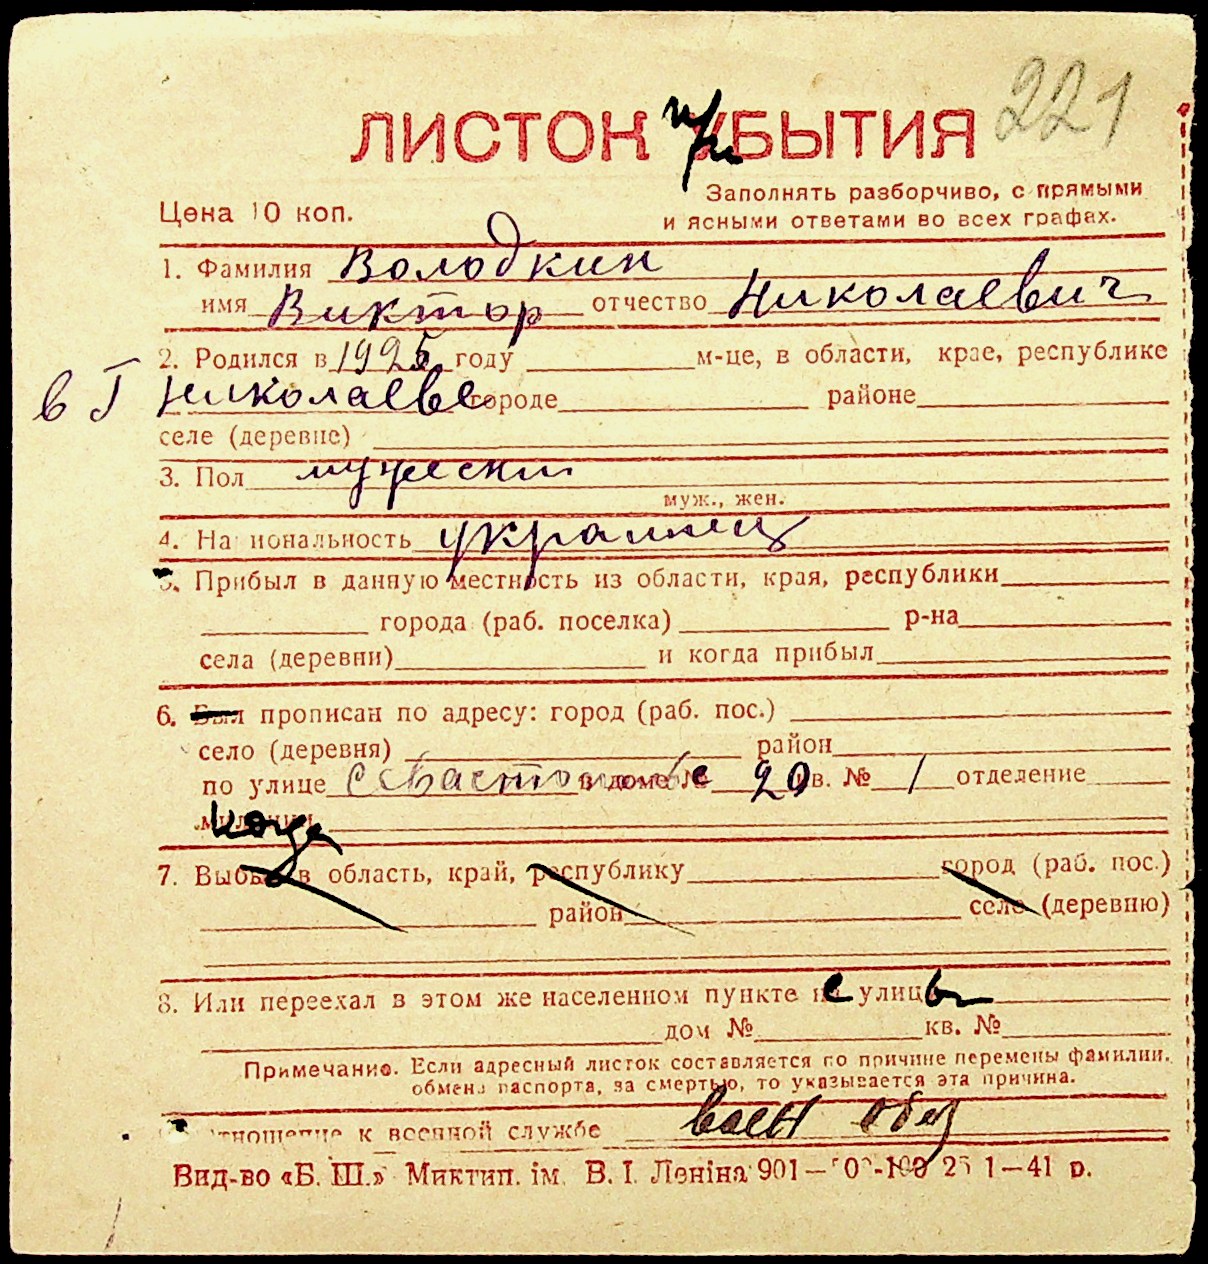 221
ЛИСТОК при УБЫТИЯ
Цена 10 коп.
Заполнять разборчиво, с прямыми
и ясными ответами во всех графах.
1. Фамилия Володкин
имя Виктор отчество Николаевич
2. Родился в 1925 году м-це, в области, крае, республике
в г Николаеве городе районе
селе (деревне)
3. Пол мужеский
муж., жен.
4. Национальность украинец
5. Прибыл в данную местность из области, края, республики
города (раб. поселка) р-на
села (деревни) и когда прибыл
6. Был прописан по адресу: город (раб. пос.)
село (деревня) район
по улице в доме № 20 кв. № 1 отделение
милиции
куда
7. Выбыл в область, край, республику город (раб. пос.)
район село (деревню)
8. Или переехал в этом же населенном пункте с улицы
дом № кв. №
Примечание. Если адресный листок составляется по причине перемены фамилии,
обмена паспорта, за смертью, то указывается эта причина.
отношение к военной службе воен обяз
Вид-во «Б. Ш.» Миктип. ім. В. І. Леніна 901— 1—41 р.